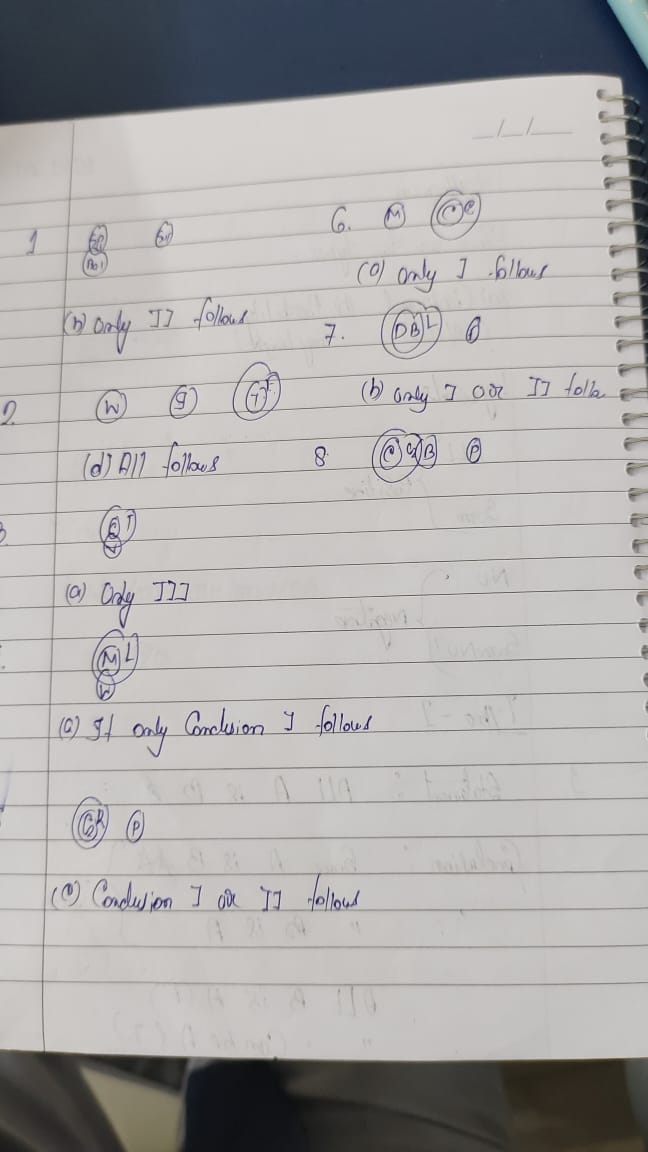 _/_/_
1
(b) only II follows
2.
W g T F
(d) All follows
3
E T
(a) Only III
M L
W
(c) If only Conclusion I follows
G R P
(e) Conclusion I or II follows
6. M C C
(a) only I follows
7. D B L
(b) only I or II follo
8 C B P